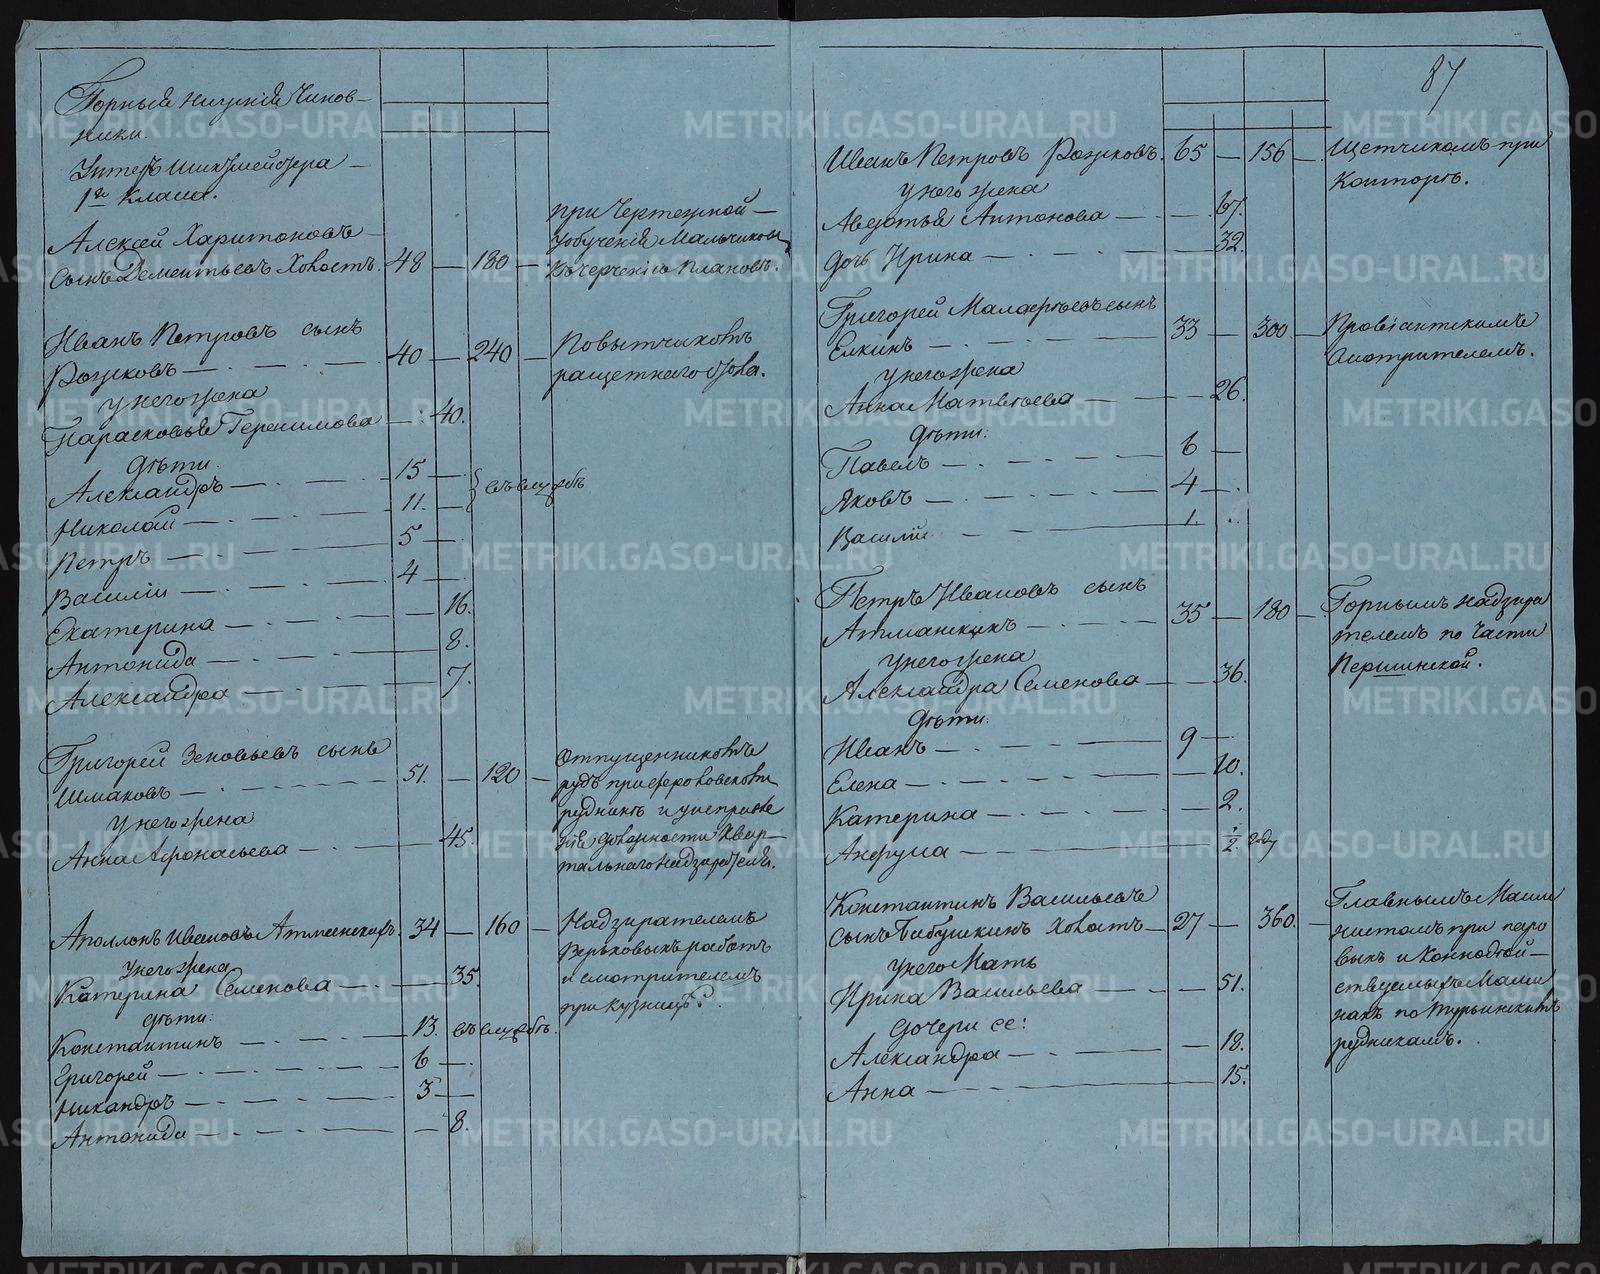 Горныя нисшія Чинов-
ники.
Унтеръ Шихтмейстера
1го Класса.
Алексей Харитоновъ
сынъ Дементьевъ Холостъ. 48 — 180 —
при Чертежной
у обученія Мальчиковъ
къ черченію плановъ.
Иванъ Петровъ сынъ
Рожковъ — 40 — 240 —
Повытчикомъ
ращетнаго
у него жена
Парасковья Герасимова — 40.
дѣти.
Александръ — 15 —
въ службѣ
Николай — 11. —
Петръ — 5 —
Василій — 4 —
Екатерина — 16.
Антонида — 8.
Александра — 7.
Григорей Зеновьевъ сынъ
Шмаковъ — 51. — 120 —
Отпущенникомъ
рудъ при Фроловскомъ
рудникѣ и
должности Квар-
тальнаго надзирателя.
у него жена
Анна Афонасьева — 45.
Аполлонъ Ивановъ Атманскихъ. 34 — 160 —
Надзирателемъ
Верьховыхъ работъ
и смотрителемъ
при кузницѣ.
у него жена
Катерина Семенова — 35.
дѣти.
Константинъ — 13. въ службѣ.
Григорей — 6 —
Никандръ — 3 —
Антонида — 8.
87
Иванъ Петровъ Рожковъ. 65 — 156 —
Щетчикомъ при
Конторѣ.
у него жена
Авдотья Антонова — 67.
дочь Ирина — 32.
Григорей Малафѣевъ сынъ
Елкинъ — 33 — 300 —
Провіантскимъ
Смотрителемъ.
у него жена
Анна Матвѣева — 26.
дѣти:
Павелъ — 6 —
Яковъ — 4 —
Василій — 1.
Петръ Ивановъ сынъ
Атманскихъ — 35 — 180 —
Горнымъ надзира
телемъ по части
Першинской.
у него жена
Александра Семенова — 36.
дѣти:
Иванъ — 9 —
Елена — 10.
Катерина — 2.
Анфуса — 1/2 году
Константинъ Васильевъ
сынъ Бабушкинъ Холостъ — 27 — 360.
Главнымъ Маши
нистомъ при паро
выхъ и Коннодѣй-
ствуемыхъ Маши
нахъ по Турьинскимъ
рудникамъ.
у него Мать
Ирина Васильева — 51.
дочери ее:
Александра — 18.
Анна — 15.
METRIKI.GASO-URAL.RU